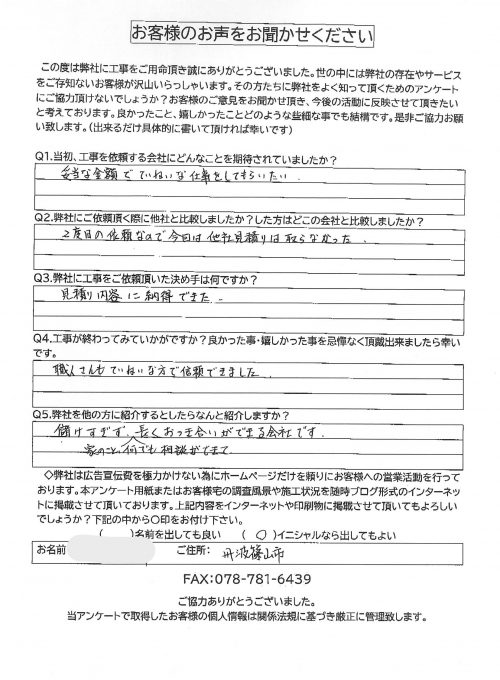 お客様のお声をお聞かせください
この度は弊社に工事をご用命頂き誠にありがとうございました。世の中には弊社の存在やサービス
をご存知ないお客様が沢山いらっしゃいます。その方たちに弊社をよく知って頂くためのアンケート
にご協力頂けないでしょうか?お客様のご意見をお聞かせ頂き、今後の活動に反映させて頂きたい
と考えております。良かったこと、嬉しかったことどのような些細な事でも結構です。是非ご協力お願
い致します。(出来るだけ具体的に書いて頂ければ幸いです)
Q1.当初、工事を依頼する会社にどんなことを期待されていましたか?
妥当な金額でていねいな仕事をしてもらいたい.
Q2.弊社にご依頼頂く際に他社と比較しましたか?した方はどこの会社と比較しましたか?
2度目の依頼なので今回は他社見積りは取らなかった.
Q3.弊社に工事をご依頼頂いた決め手は何ですか?
見積り内容に納得できた.
Q4.工事が終わってみていかがですか?良かった事・嬉しかった事を忌憚なく頂戴出来ましたら幸い
です。
職人さんもていねいな方で信頼できました
Q5.弊社を他の方に紹介するとしたらなんと紹介しますか?
儲けすぎず、長くおつき合いができる会社です.
家のこと何でも相談ができて
◇弊社は広告宣伝費を極力かけない為にホームページだけを頼りにお客様への営業活動を行って
おります。本アンケート用紙またはお客様宅の調査風景や施工状況を随時ブログ形式のインターネッ
トに掲載させて頂いております。上記内容をインターネットや印刷物に掲載させて頂いてもよろしい
でしょうか?下記の中から○印をお付け下さい。
( )名前を出しても良い (○)イニシャルなら出してもよい
お名前 ご住所: 丹波篠山市
FAX:078-781-6439
ご協力ありがとうございました。
当アンケートで取得したお客様の個人情報は関係法規に基づき厳正に管理致します。